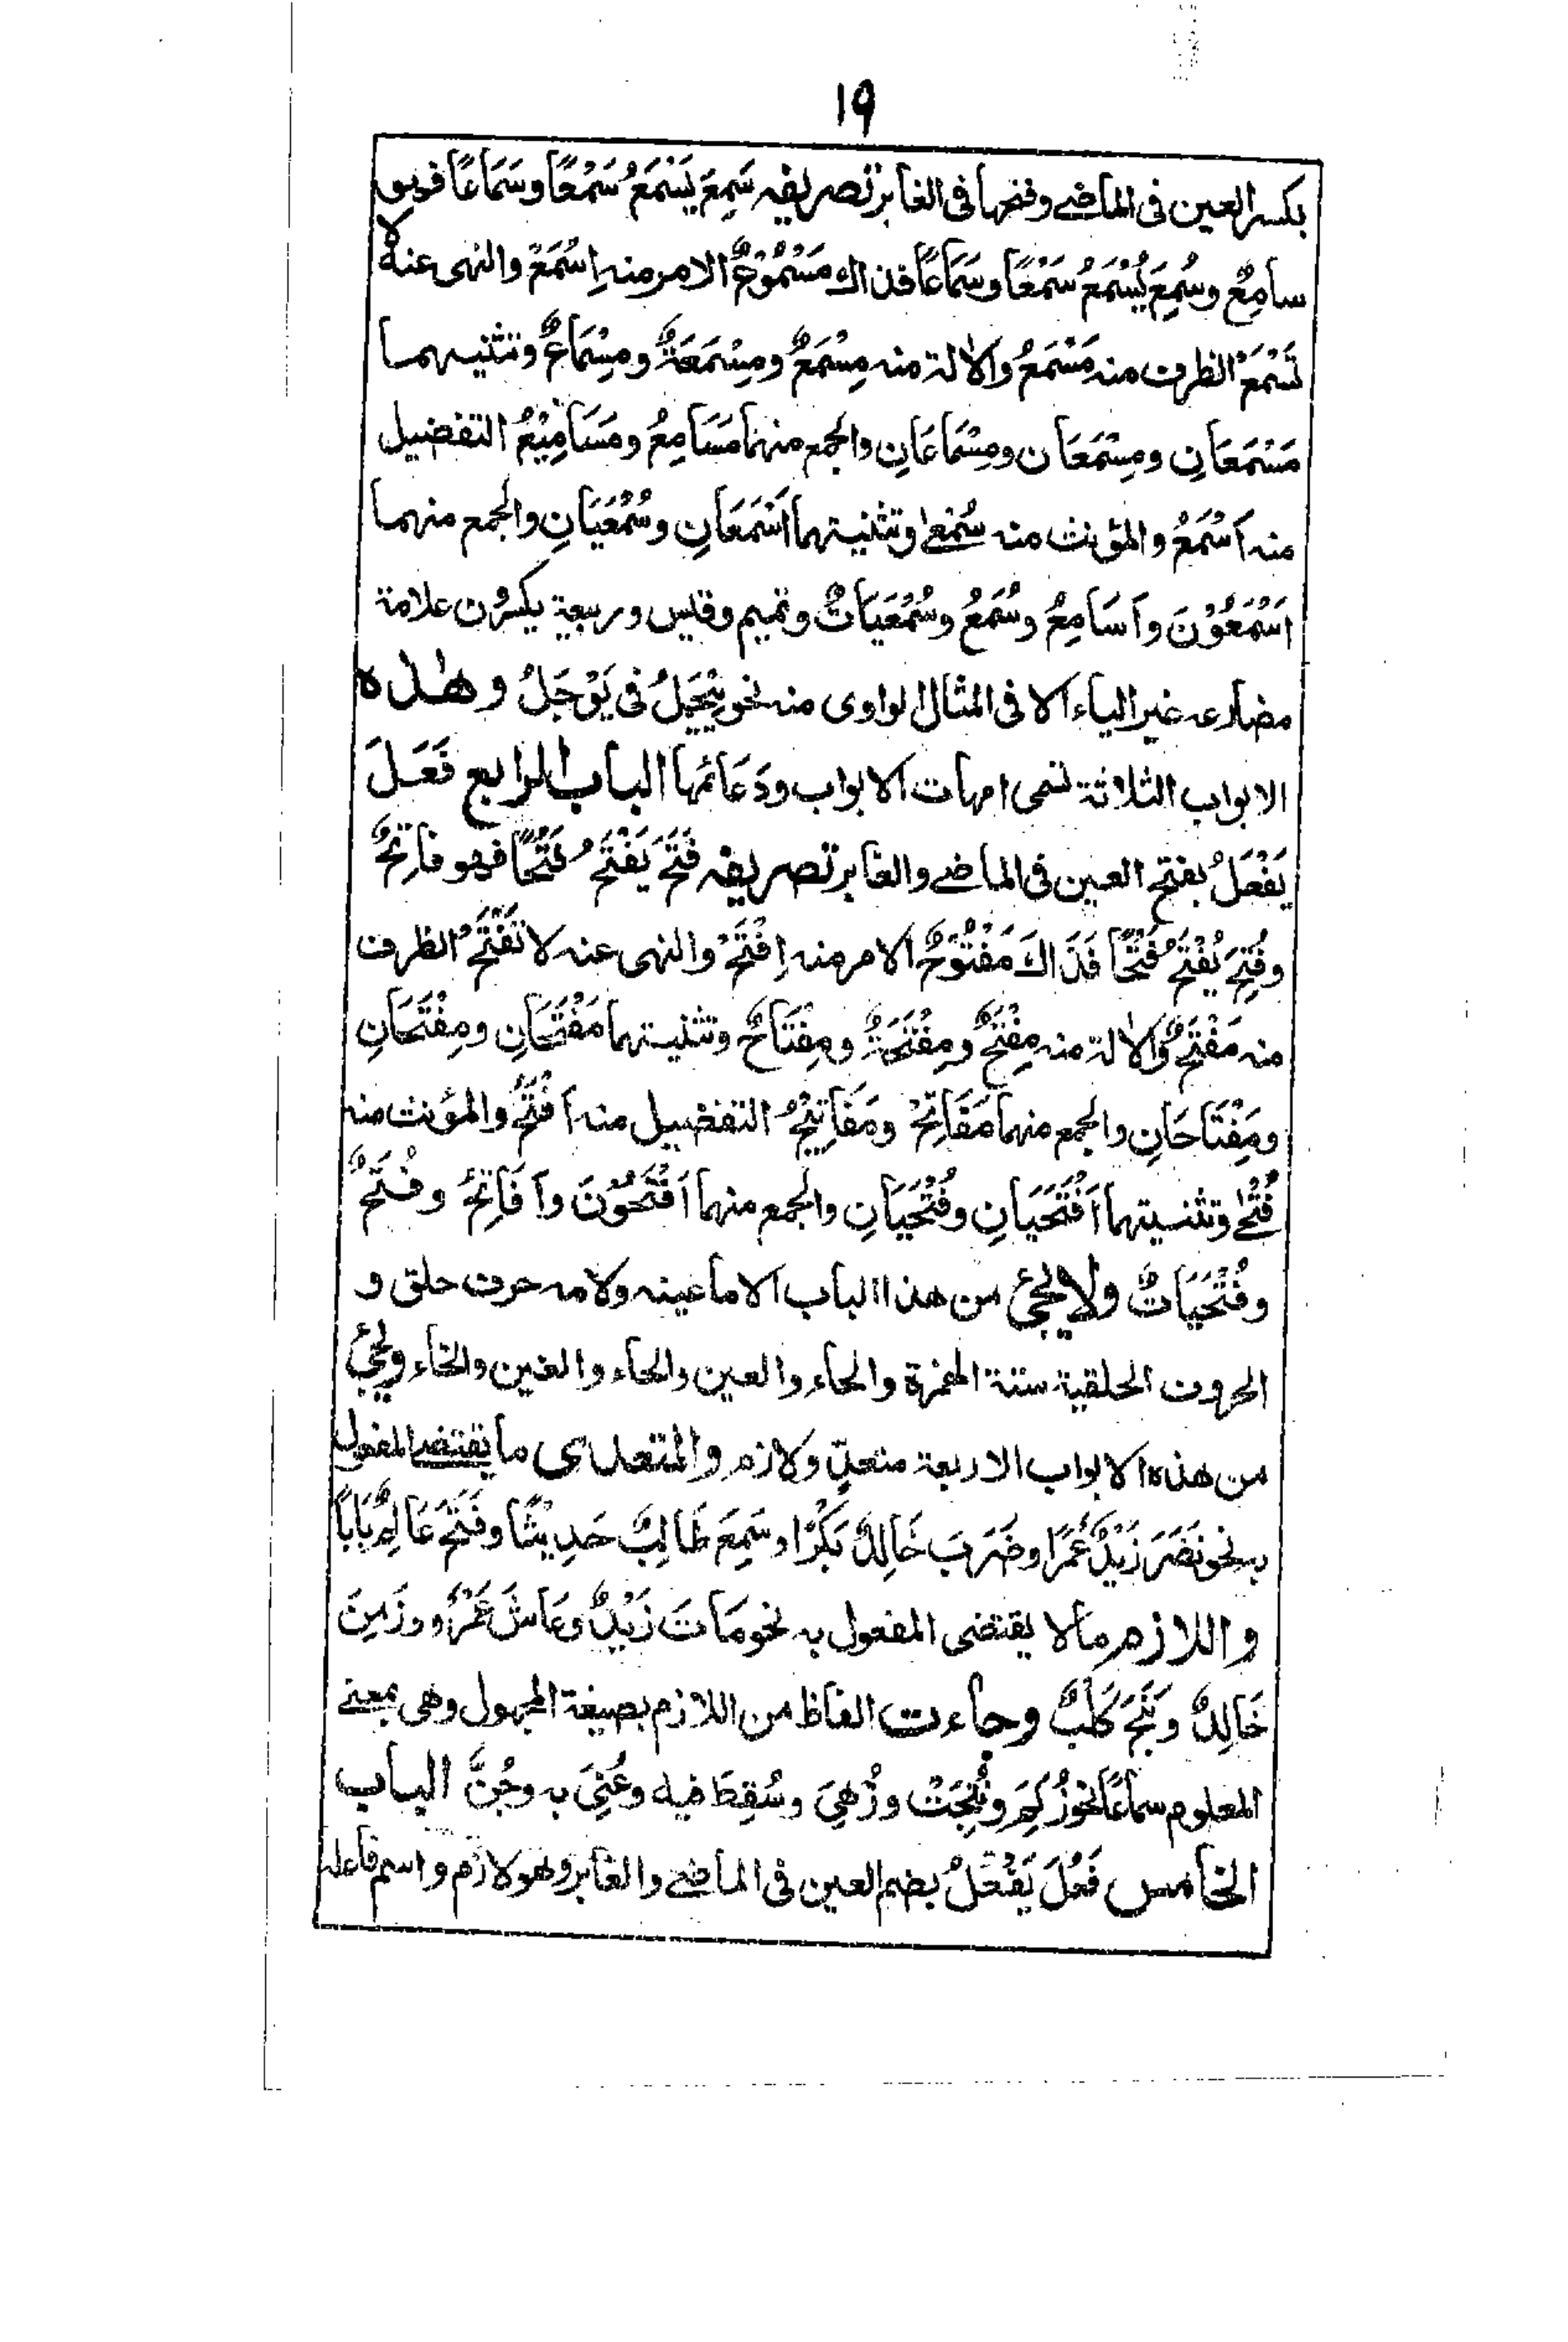 ١٩
بكسر العين فى الماضے وفتحها فى الغابر تصريفه سَمِعَ يَسْمَعُ سَمْعًا وسَمَاعًا فهو
سامِعٌ وسُمِعَ يُسْمَعُ سَمْعًا وسَمَاعًا فذاك مَسْمُوْعٌ الامر منه اِسْمَعْ والنهى عنه لا
تَسْمَعْ الظرف منه مَسْمَعُ والاٰلة منه مِسْمَعٌ ومِسْمَعَةٌ ومِسْمَاعٌ وتثنيهما
مَسْمَعَانِ ومِسْمَعَان ومِسْمَاعَانِ والجمع منهما مَسَامِعُ ومَسَامِيْعُ التفضيل
منه اَسْمَعُ والمؤنث منه سُمْعٰے وتثنيتهما اَسْمَعَانِ وسُمْعَيَانِ والجمع منهما
اَسْمَعُوْنَ واَسَامِعُ وسُمَعُ وسُمْعَيَاتٌ وتميم وقيس وربيعة يكسرُون علامة
مضارعه غير الياء الا فى المثال الواوى منه نحو يِيْجَلُ فى يَوْجَلُ وهٰذه
الابواب الثلاثة تسمى امهات الابواب ودَعَائمها الباب الرابع فَعَلَ
يَفْعَلُ بفتح العين فى الماضے والغابر تصريفه فَتَحَ يَفْتَحُ فَتْحًا فهو فاتِحٌ
وفُتِحَ يُفْتَحُ فَتْحًا فَذَاكَ مَفْتُوْحٌ الامر منه اِفْتَحْ والنهى عنه لا تَفْتَحْ الظرف
منه مَفْتَحٌ والاٰلة منه مِفْتَحٌ ومِفْتَحَةٌ ومِفْتَاحٌ وتثنيتهما مَفْتَحَانِ ومِفْتَحَانِ
ومِفْتَاحَانِ والجمع منهما مَفَاتِحُ ومَفَاتِيْحُ التفضيل منه اَفْتَحُ والمؤنث منه
فُتْحٰے وتثنيتهما اَفْتَحَيَانِ وفُتْحَيَانِ والجمع منهما اَفْتَحُوْنَ واَفَاتِحُ وفُتَحٌ
وفُتْحَيَاتٌ ولا يجئ من هذا الباب الا ما عينه ولامه حرف حلق و
الحروف الحلقية ستة الهمزة والهاء والعين والحاء والغين والخاء ويجئ
من هذه الابواب الاربعة متعدٍّ ولازم والمتعدى ما يقتضے المفعول
به نحو نَصَرَ زَيْدٌ عَمْرًا وضَرَبَ خَالِدٌ بَكْرًا وسَمِعَ طَالِبٌ حَدِيْثًا وفَتَحَ عَالِمٌ بَابًا
واللازم مالا يقتضى المفعول به نحو مَاتَ زَيْدٌ وعَاشَ عَمْرٌو وزَمِنَ
خَالِدٌ ونَبَحَ كَلْبٌ وجاءت الفاظ من اللازم بصيغة المجهول وهى بمعنے
المعلوم سماعًا نحو زُكِمَ ونُتِجَتْ وزُهِىَ وسُقِطَ فيه وعُنِىَ به وجُنَّ الباب
الخامس فَعُلَ يَفْعُلُ بضم العين فى الماضے والغابر وهو لازم واسم فاعله